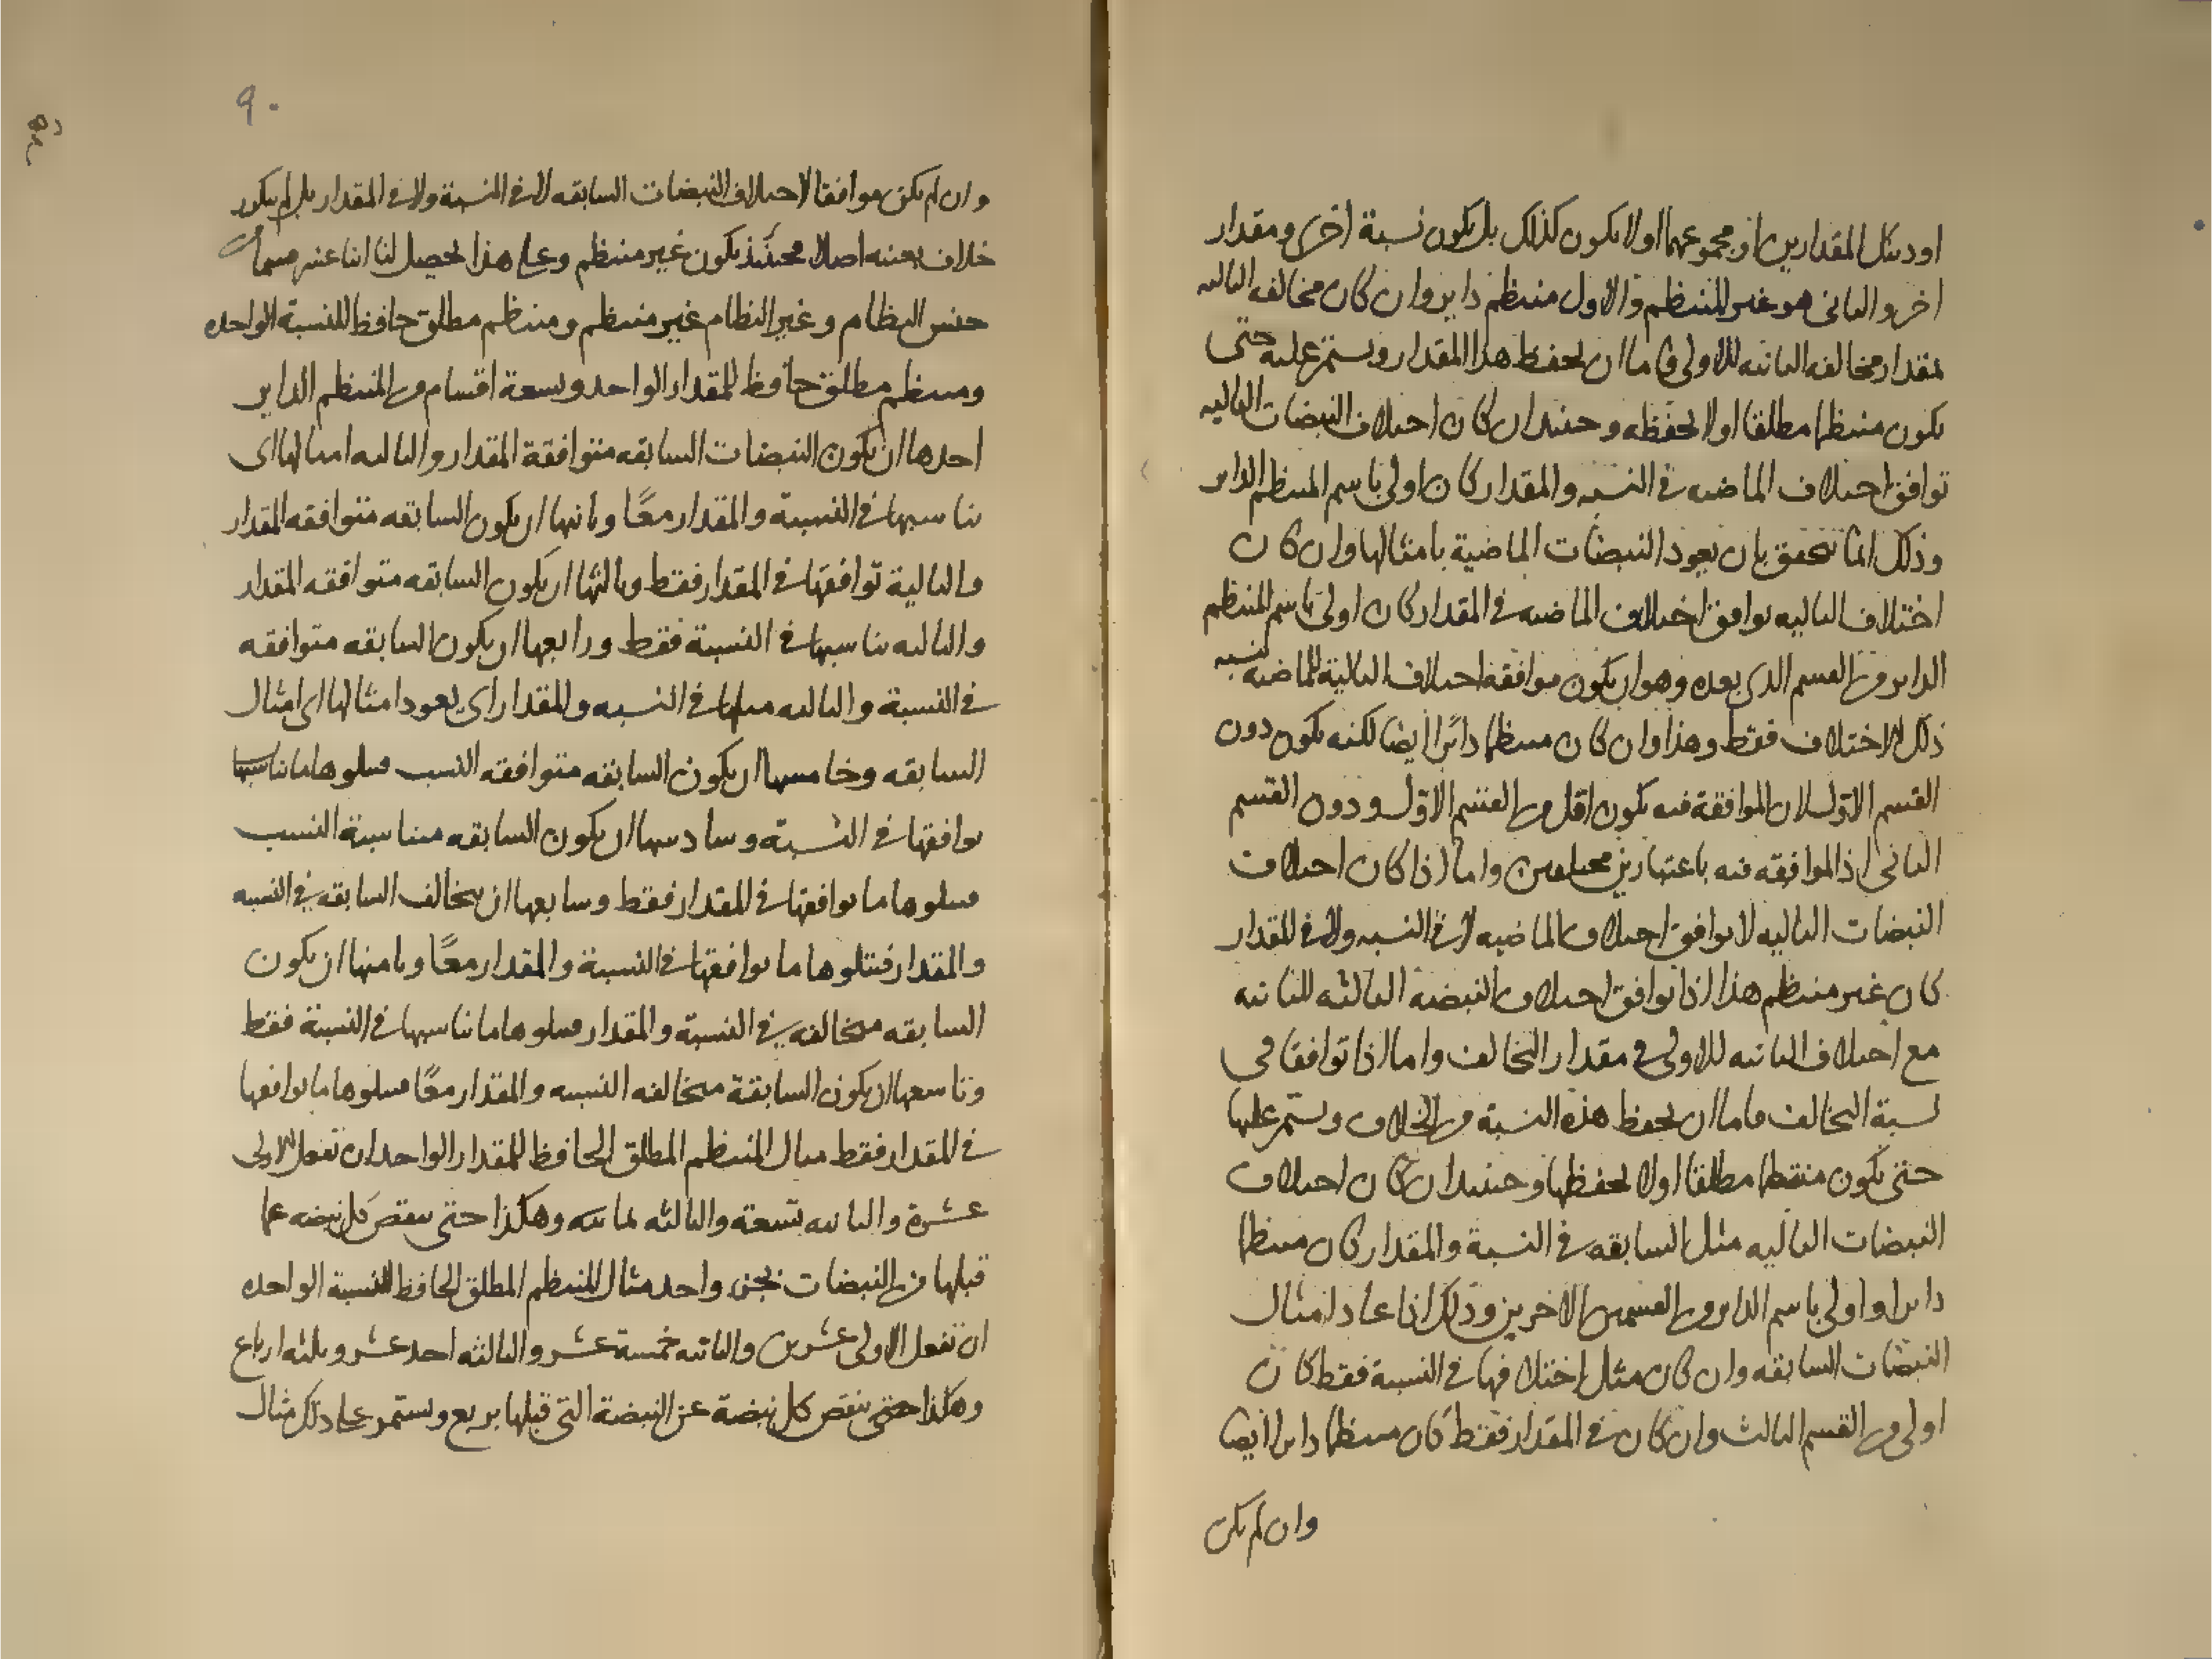 او دينك المقدارين او مجموعهما اولا يكون كذلك بل يكون نسبة اخرى ومقدار
اخر والثانى هو غير المنتظم والاول منتظم داير وان كان مخالفه الثالثه
بمقدار مخالفه الثانيه للاولى فاما ان يحفظ هذا المقدار ويستمر عليه حتى
يكون منتظما مطلقا اولا يحفظه وحينئذ ان كان اختلاف النبضات التاليه
توافق اختلاف الماضيه فى النسبه والمقدار كان اولى باسم المنتظم الداير
وذلك انما يتحقق بان يعود النبضات الماضية بامثالها وان كان
اختلاف التاليه يوافق اختلاف الماضيه فى المقدار كان اولى باسم المنتظم
الداير من القسم الذى بعده وهو ان يكون موافقة اختلاف التالية للماضيه لنسبه
ذلك الاختلاف فقط وهذا وان كان منتظما دائرا ايضا لكنه يكون دون
القسم الاول لان الموافقة فيه يكون اقل من القسم الاول ودون القسم
الثانى اذ الموافقه فيه باعتبارين مختلفين واما اذا كان اختلاف
النبضات التاليه لا يوافق اختلاف الماضيه لا فى النسبه ولا فى المقدار
كان غير منتظم هذا اذا توافق اختلاف النبضه الثالثه للثانيه
مع اختلاف الثانيه للاولى فى مقدار التخالف واما اذا توافقا فى
نسبة التخالف فاما ان يحفظ هذه النسبة من الخلاف ويستمر عليها
حتى يكون منتظما مطلقا اولا يحفظها وحينئذ ان كان اختلاف
النبضات التاليه مثل السابقه فى النسبة والمقدار كان منتظما
دايرا واولى باسم الداير من القسمين الاخرين وذلك اذا عاد امثال
النبضات السابقه وان كان مثل اختلافها فى النسبة فقط كان
اولى من القسم الثالث وان كان فى المقدار فقط كان منتظما دايرا ايضا
وان لم يكن
٩٠
وان لم يكن موافقا لاختلاف النبضات السابقه لا فى النسبة ولا فى المقدار بل لم يكون
خلاف بعينه اصلا فحينئذ يكون غير منتظم وعلى هذا يحصل لنا اثنا عشر قسما
جنس النظام وغير النظام غير منتظم ومنتظم مطلق حافظ للنسبة الواحده
ومنتظم مطلق حافظ للمقدار الواحد وتسعة اقسام من المنتظم الداير
احدها ان يكون النبضات السابقه متوافقة المقدار والتاليه امثالها اى
يناسبها فى النسبة والمقدار معًا وثانيها ان يكون السابقه متوافقه المقدار
والتالية توافقها فى المقدار فقط وثالثها ان يكون السابقه متوافقه المقدار
والتاليه يناسبها فى النسبة فقط ورابعها ان يكون السابقه متوافقه
فى النسبة والتاليه مثلها فى النسبه والمقدار اى يعود امثالها اى امثال
السابقه وخامسها ان يكون السابقه متوافقه النسب فيتلوها ما يناسبها
يوافقها فى النسبة وسادسها ان يكون السابقه مناسبة النسب
فيتلوها ما يوافقها فى المقدار فقط وسابعها ان يخالف السابقه فى النسبه
والمقدار فيتلوها ما يوافقها فى النسبة والمقدار معًا وثامنها ان يكون
السابقه مخالفه فى النسبة والمقدار فيتلوها ما يناسبها فى النسبة فقط
وتاسعها ان يكون السابقة مخالفه النسبه والمقدار معًا فيتلوها ما يوافقها
فى المقدار فقط مثال المنتظم المطلق الحافظ للمقدار الواحد ان تفعل الاولى
عشرة والثانيه تسعة والثالثه ثمانيه وهكذا حتى ينقص كل نبضه عما
قبلها من النبضات بجزء واحد مثال المنتظم المطلق الحافظ للنسبة الواحده
ان تفعل الاولى عشرين والثانيه خمسة عشر والثالثه احد عشر وثلثه ارباع
وهكذا حتى ينقص كل نبضة عن النبضة التى قبلها بربع ويستمر على ذلك مثال